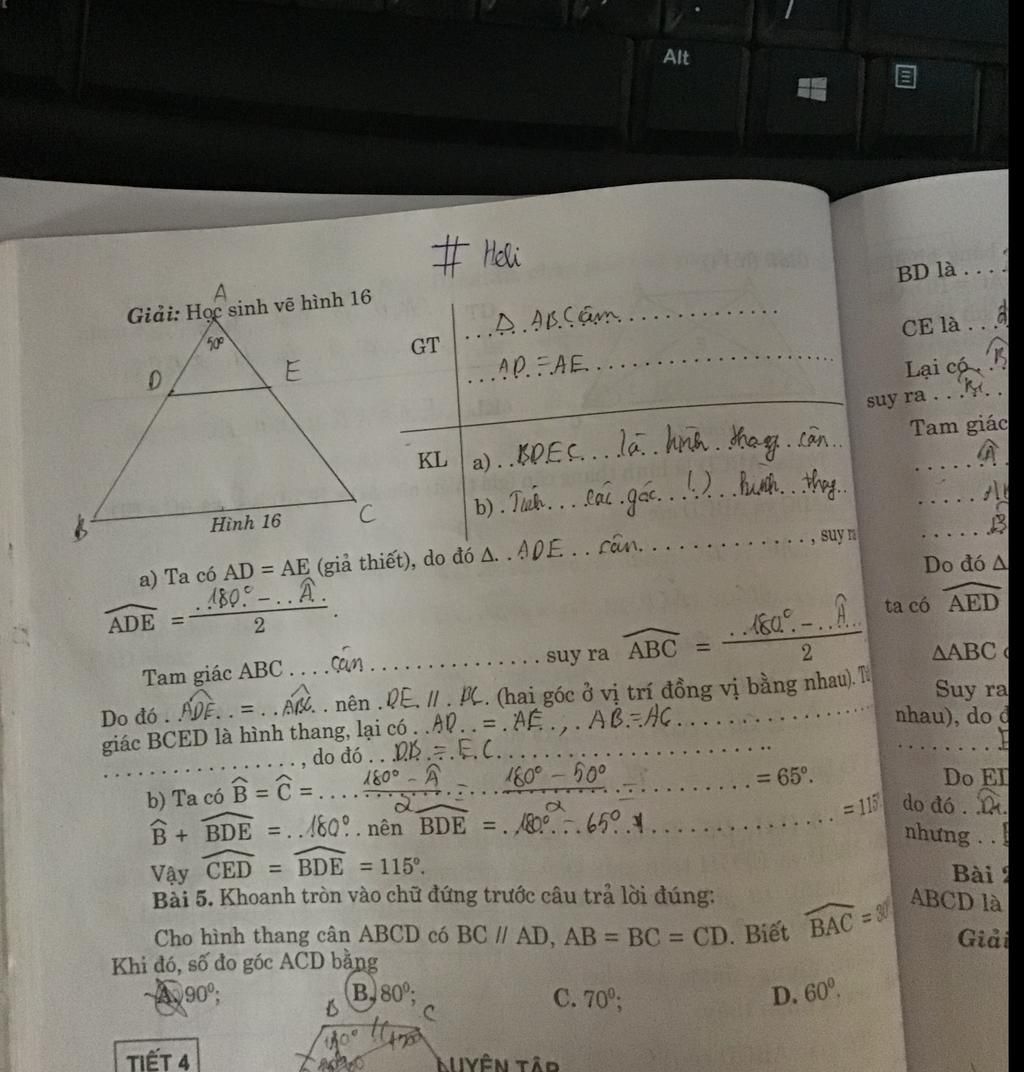 Alt
# Heli
A
Giải: Học sinh vẽ hình 16
50°
D
E
B
C
Hình 16
GT
Δ ABC cân
AD = AE
KL
a) BDEC là hình thang cân
b) Tính các góc hình thang
a) Ta có AD = AE (giả thiết), do đó Δ ADE cân, suy ra
ADE = 180° - Â / 2
Tam giác ABC cân suy ra ABC = 180° - Â / 2
Do đó ADE = ABC nên DE // BC (hai góc ở vị trí đồng vị bằng nhau). Tứ
giác BCED là hình thang, lại có AD = AE, AB = AC
, do đó DB = EC
b) Ta có B̂ = Ĉ = 180° - Â / 2 = 180° - 50° / 2 = 65°.
B̂ + BDE = 180° nên BDE = 180° - 65° = 115°
Vậy CED = BDE = 115°.
Bài 5. Khoanh tròn vào chữ đứng trước câu trả lời đúng:
Cho hình thang cân ABCD có BC // AD, AB = BC = CD. Biết BAC = 30°
Khi đó, số đo góc ACD bằng
A. 90°; B. 80°; C. 70°; D. 60°.
B
C
TIẾT 4
LUYỆN TẬP
BD là
CE là
Lại có
suy ra
Tam giác
Â
B̂
Do đó Δ
ta có AED
ΔABC
Suy ra
nhau), do đ
Do ED
do đó
nhưng
Bài 2
ABCD là
Giải